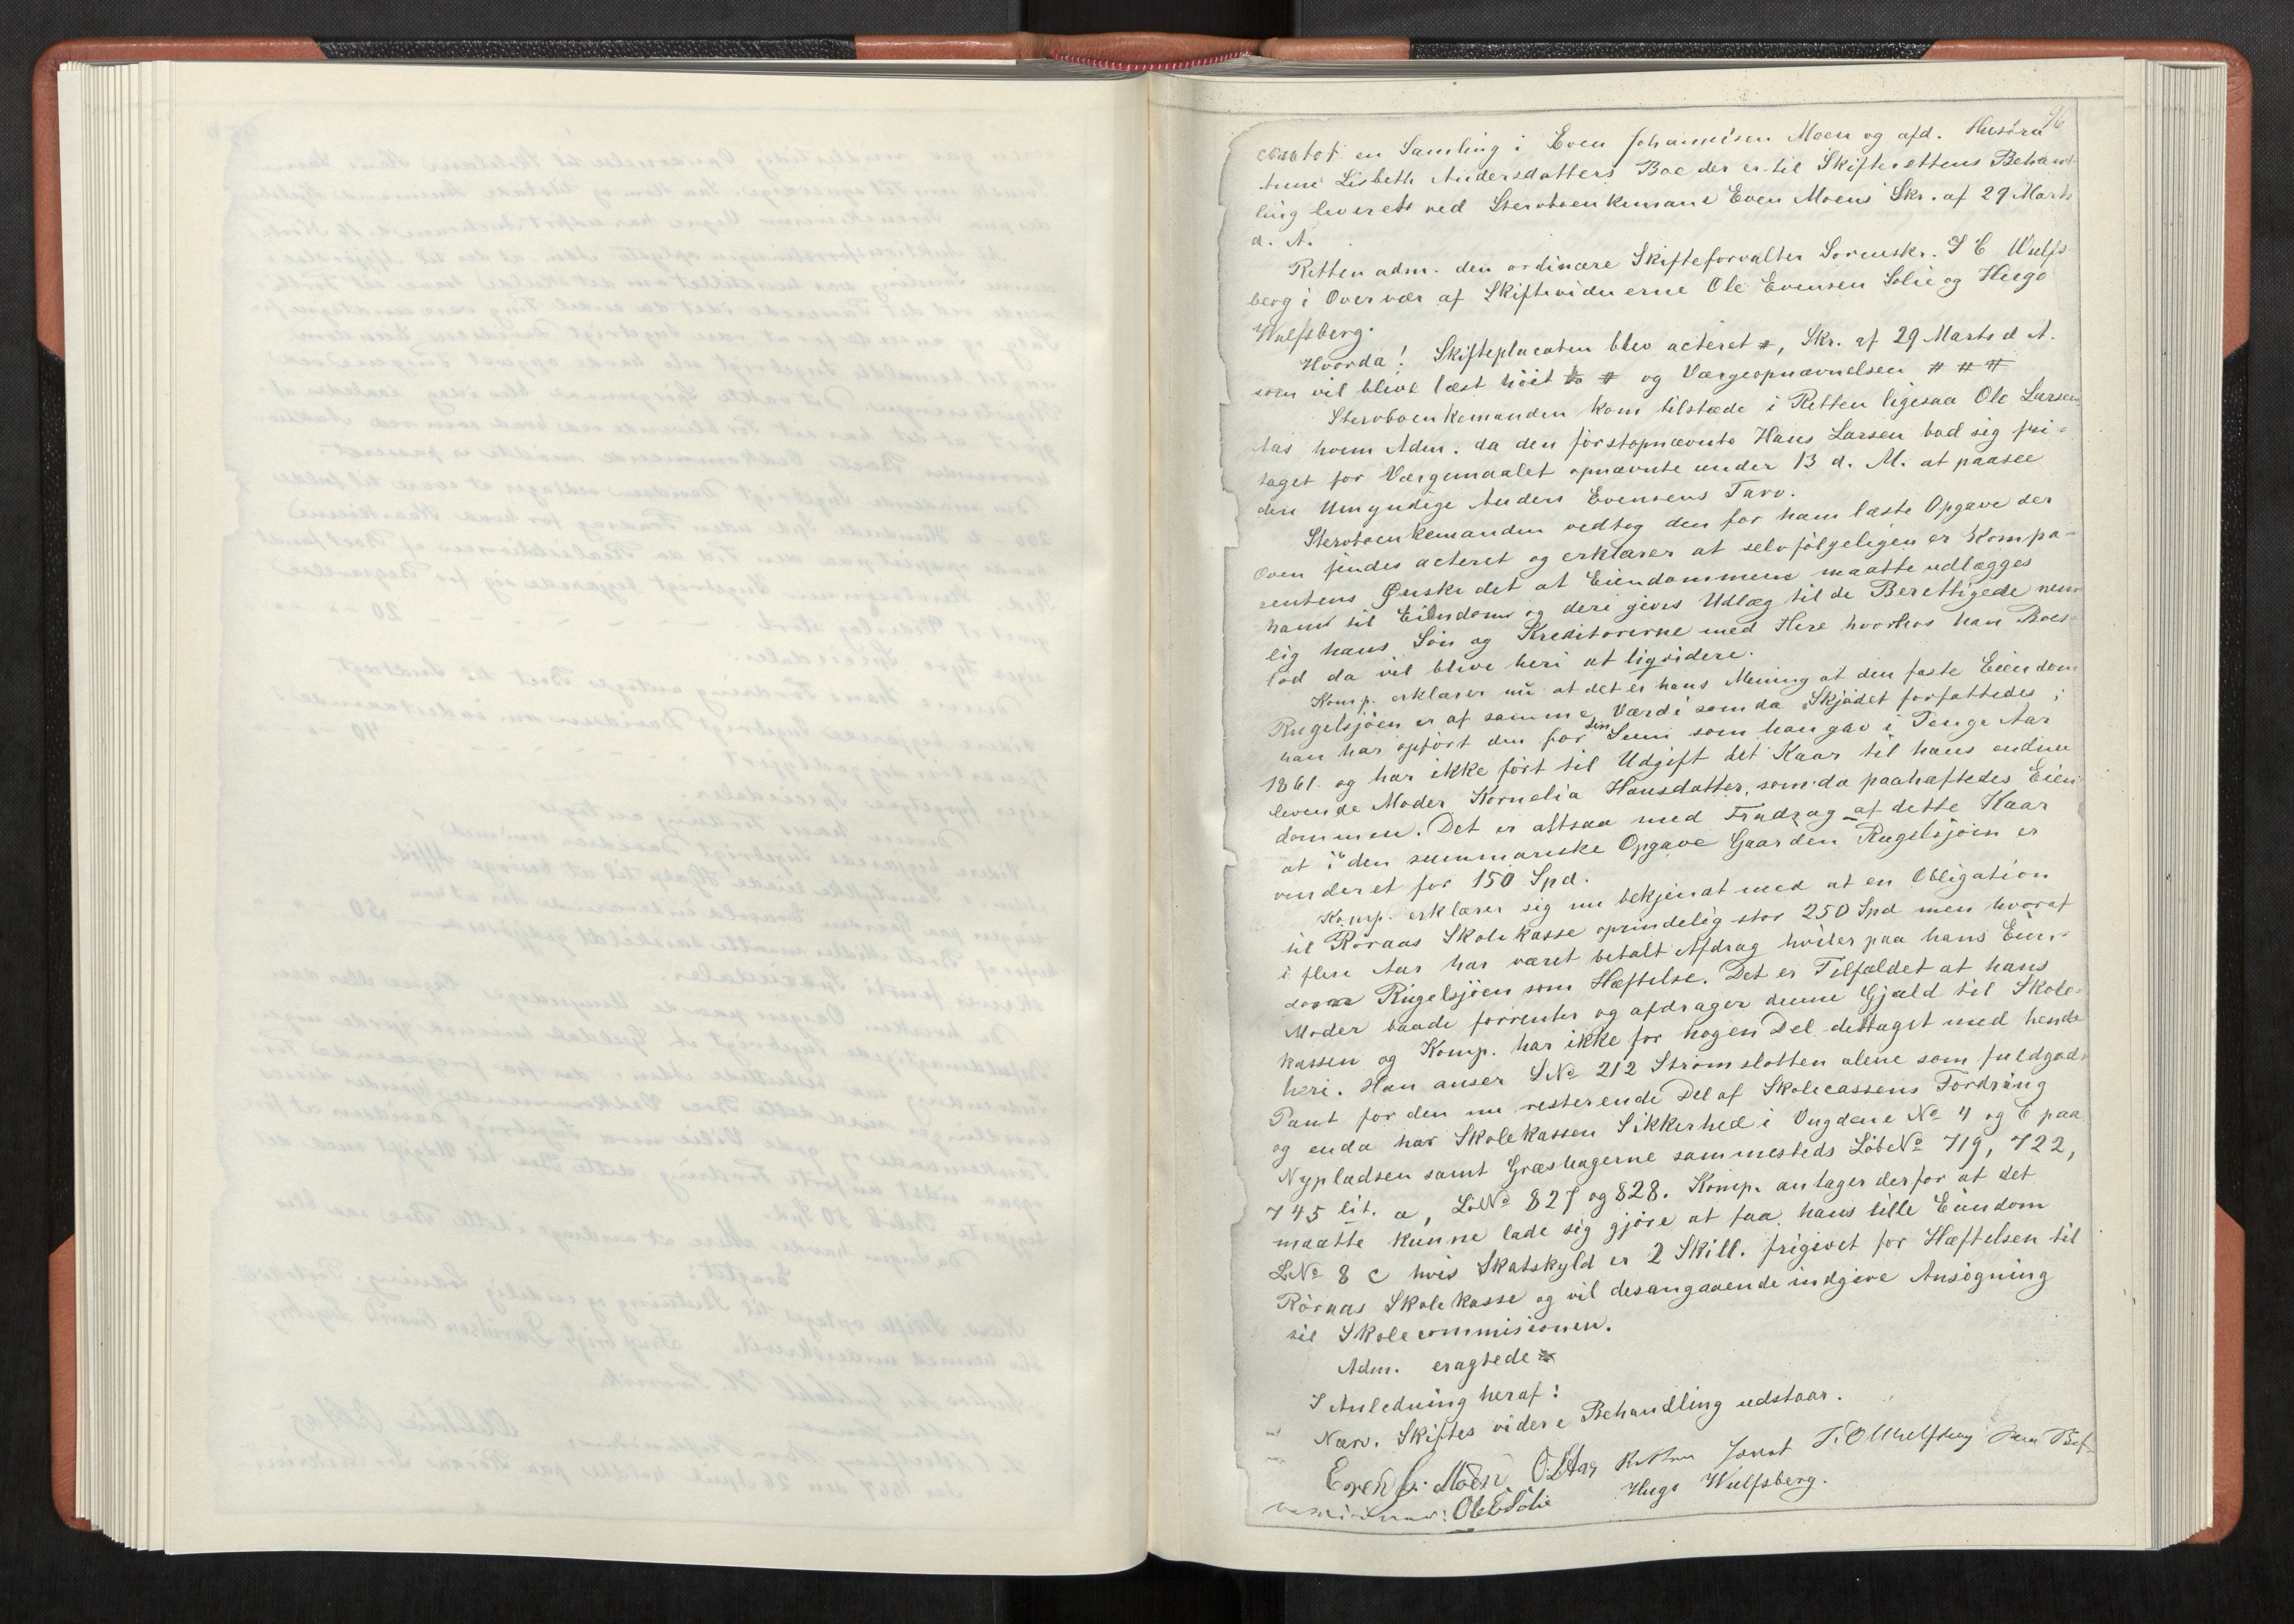 96
en Samling i Even Johannesen Moen og afd. Hustru
Anne Lisbeth Andersdatters Boe der er til Skifterettens Behand-
ling leveret ved Stervboenkemand Even Moens Skr. af 29 Marts
d. A.
Retten adm. den ordinære Skifteforvalter Sorenskr. I C Wulfs
berg i Overvær af Skiftevidnerne Ole Evensen Solie og Hugo
Wulfsberg.
Hvorda! Skifteplacaten blev acteret #, Skr. af 29 Marts d A.
som vil blive læst höit # og Værgeopnævnelsen # # #
Stervboenkemanden kom tilstæde i Retten ligesaa Ole Larsen
Aas hvem Adm. da den förstopnævnte Hans Larsen bad sig fri-
taget for Værgemaalet opnævnte under 13 d. M. at paasee
den Umyndige Anders Evensens Tarv.
Stervboenkemanden vedtog den for ham læste Opgave der
oven findes acteret og erklærer at selvfölgeligen er Kompa-
rentens Ønske det at Eiendommen maatte udlægges
ham til Eiendom og deri gives Udlæg til de Berettigede nem
lig hans Sön og Kreditorerne med Flere hvorhos han Boes-
lod da vil blive heri at liqvidere.
Komp. erklærer nu at det er hans Mening at den faste Eiendom
Rugelsjöen er af samme Værdi som da Skjödet forfattedes;
han har opfört den for den Sum som han gav i Penge Aar
1861 og har ikke fört til Udgift det Kaar til hans endnu
levende Moder Kornelia Hansdatter, som da paahæftedes Eien
dommen. Det er altsaa med Fradrag af dette Kaar
at i den summariske Opgave Gaarden Rugelsjöen er
vurderet for 150 Spd.
Komp. erklærer sig nu bekjendt med at en Obligation
til Röraas Skolekasse oprindelig stor 250 Spd men hvoraf
i flere Aar har været betalt Afdrag hviler paa hans Eien-
dom Rugelsjöen som Hæftelse. Det er Tilfældet at hans
Moder baade forrenter og afdrager denne Gjæld til Skole-
kassen og Komp. har ikke for nogen Del deltaget med hende
heri. Han anser LNo 212 Strömslotten alene som fuldgodt
Pant for den nu resterende Del af Skolecassens Fordring
og enda har Skolekassen Sikkerhed i Vngdene No 4 og 6 paa
Nypladsen samt Græshagerne sammesteds LöbeNo 719, 722,
745 lit. a, LNo 827 og 828. Komp. antager derfor at det
maatte kunne lade sig gjöre at faa hans lille Eiendom
LNo 8 c hvis Skatskyld er 2 Skill. frigivet for Hæftelsen til
Röraas Skolekasse og vil desangaaende indgive Ansögning
til Skolecommisionen.
Adm. eragtede
I Anledning heraf:
Nærv. Skiftes videre Behandling udstaar.
Even J. Moen O. L. Aas Retten hævet I. C Wulfsberg
Ole E Solie Hugo Wulfsberg.